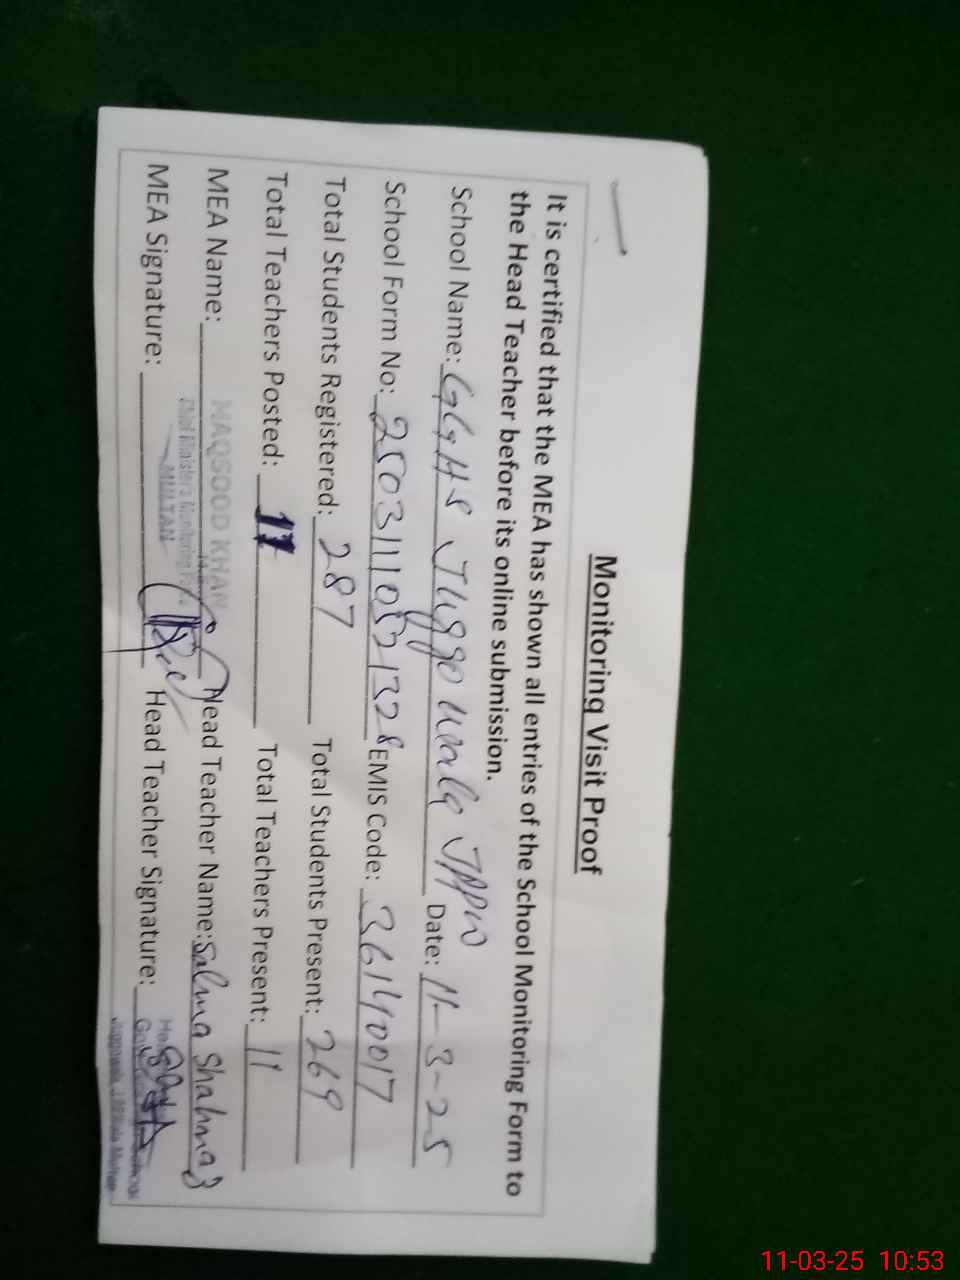 Monitoring Visit Proof
It is certified that the MEA has shown all entries of the School Monitoring Form to
the Head Teacher before its online submission.
School Name: GGHS Juggo wala JPPW Date: 11-3-25
School Form No: EMIS Code: 36140017
Total Students Registered: 287 Total Students Present: 269
Total Teachers Posted: 11 Total Teachers Present: 11
MEA Name: MAQSOOD KHAN Head Teacher Name: Salma Shahnaz
Chief Minister's Monitoring
MULTAN
MEA Signature: Head Teacher Signature:
11-03-25 10:53